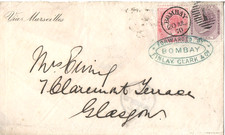 Via Marseilles
BOMBAY
FORWARDED BY
BOMBAY
FINLAY, CLARK & Co
Mrs Ewing
7 Claremont Terrace
Glasgow